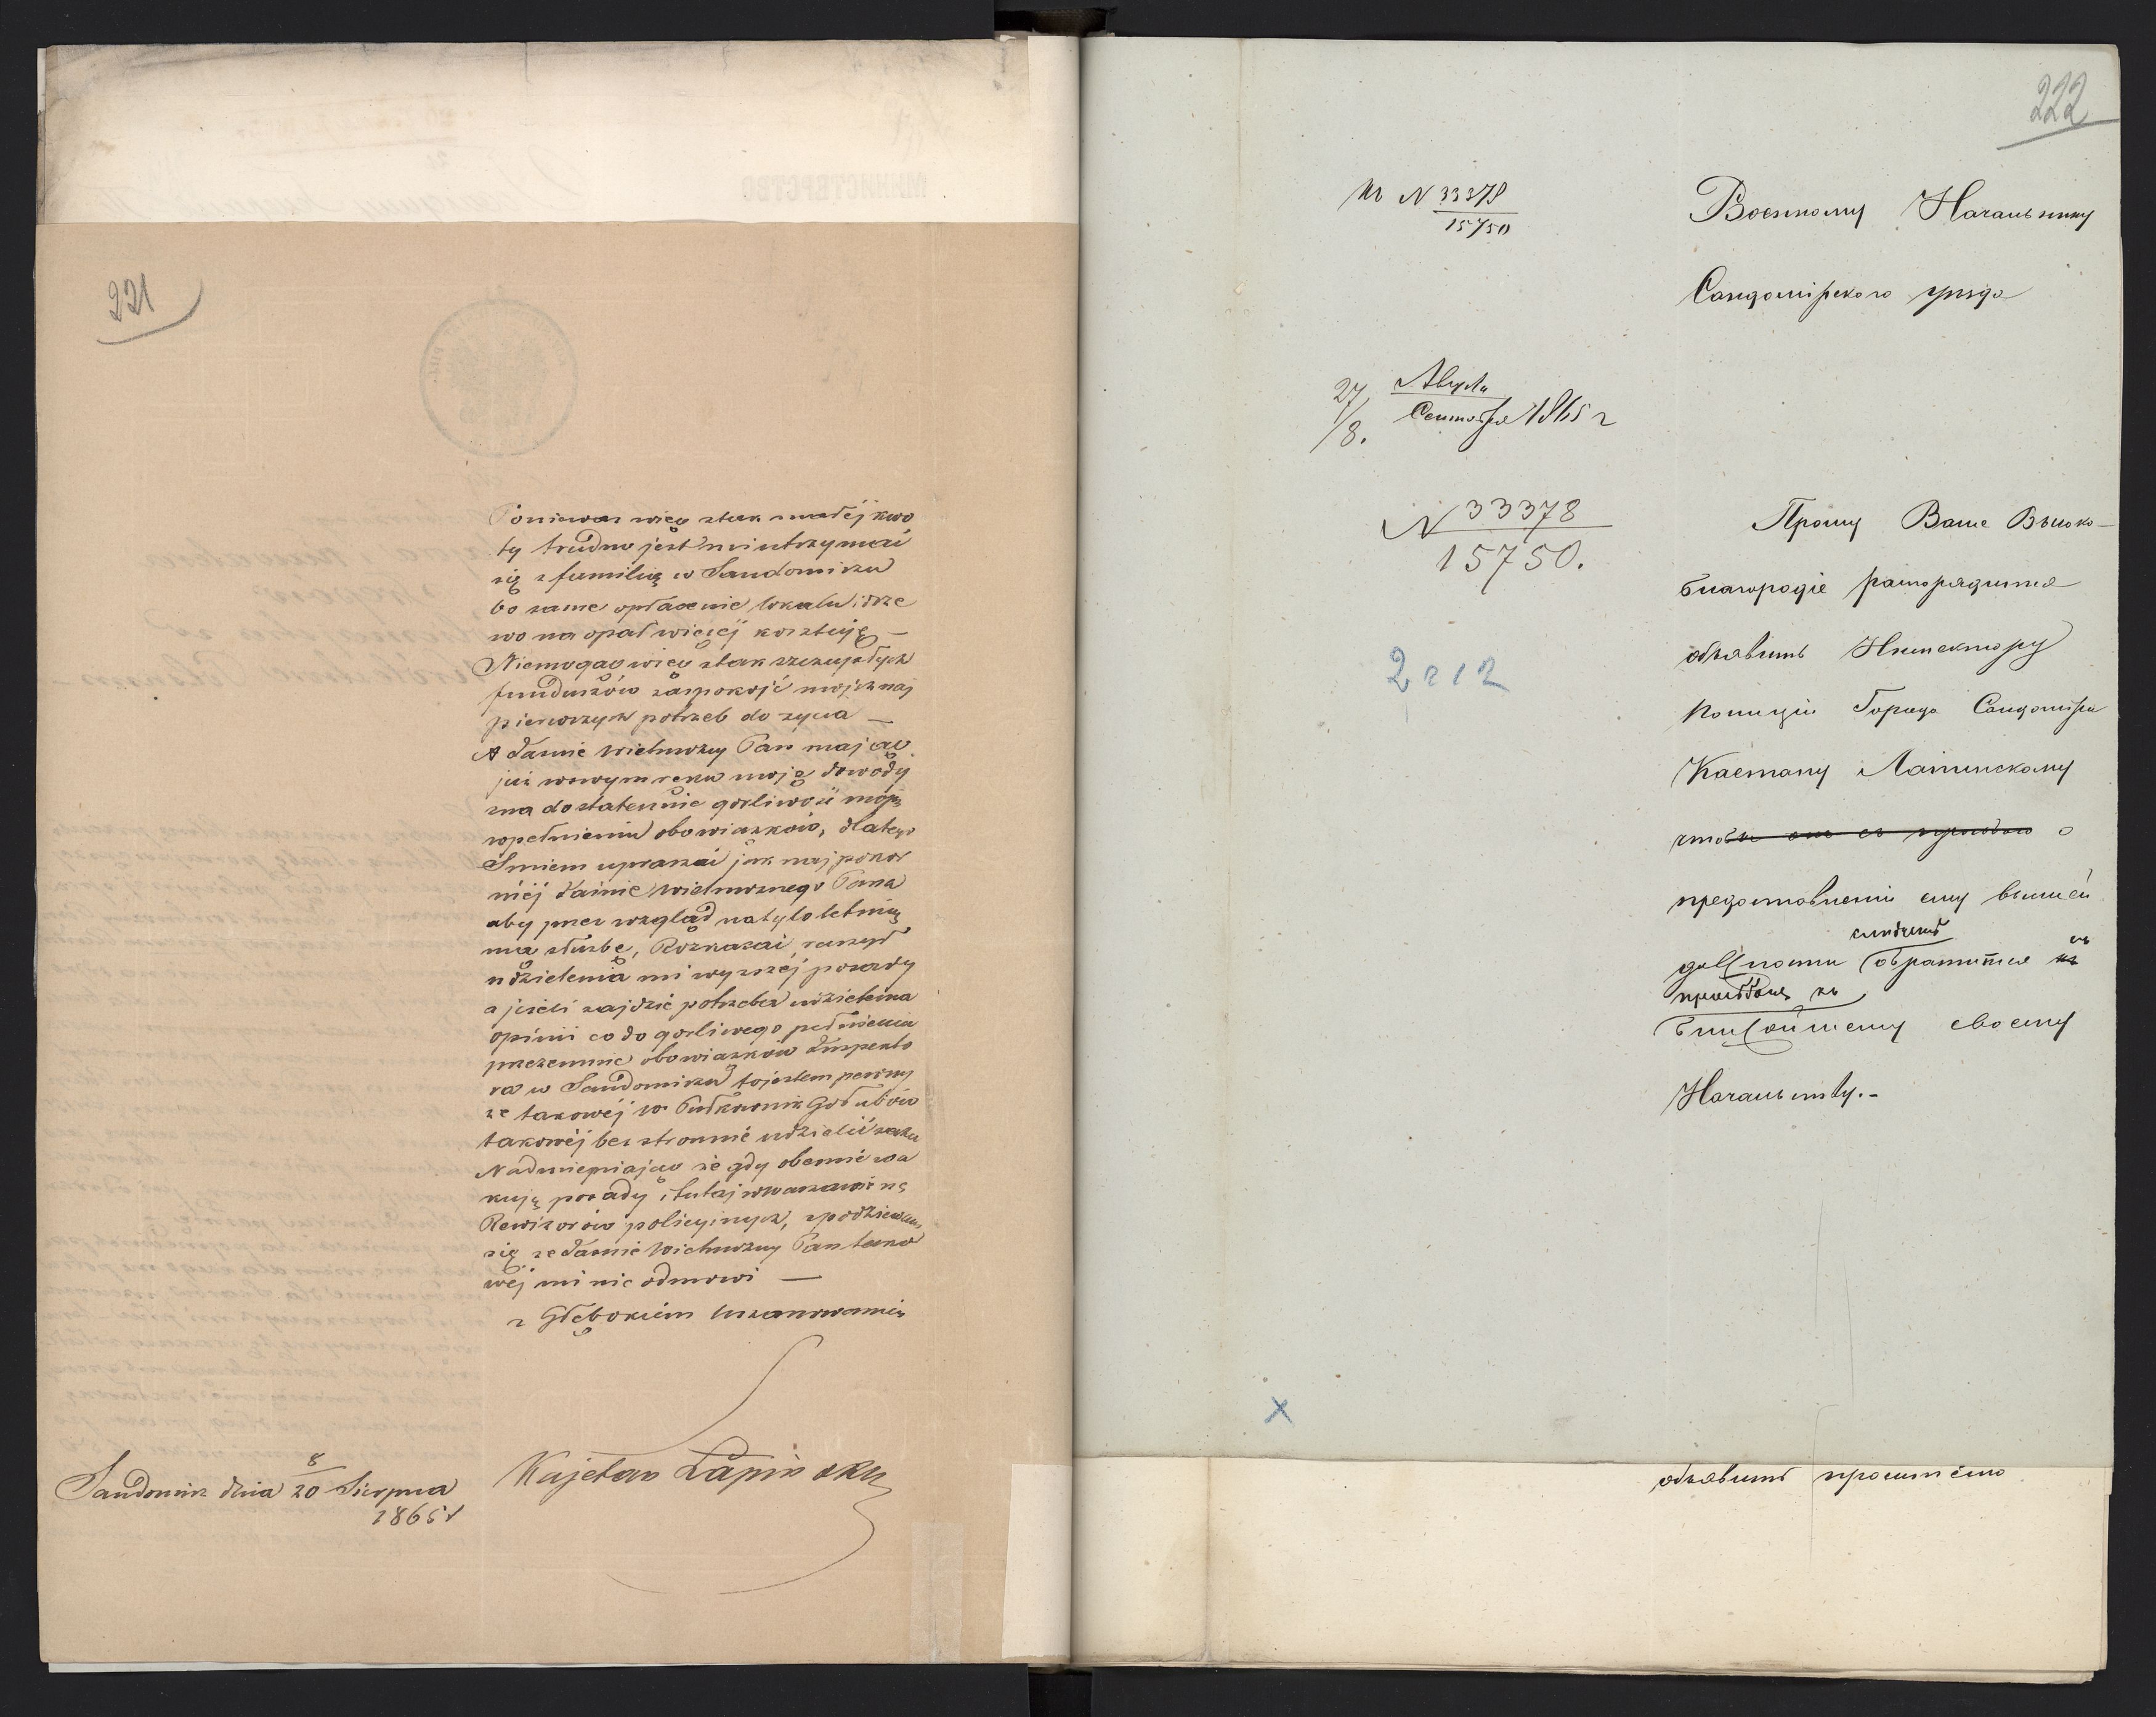 221
Poniewaz więc ztak małéj kwo
ty trudno jest mi utrzymać
się z familią w Sandomirzu
bo same opłacenie lokalu i drze
wo na opał wiecéj kosztuję —
Niemogąc więc ztak szczupłych
funduszów zaspokoić mojch naj
pierwszych potrzeb do zycia —
A Jaśnie Wielmożny Pan mając
już wswym ręku moję dowody
zna dostatecznie gorliwość moją
wpełnieniu obowiązków, dlatego
Smiem upraszać jak najpokor
niéj Jaśnie Wielmożnego Pana
aby przez wzgląd na tylo letnią
mą służbę, Rozkazać raczył
udzielenia mi wyzszéj posady
a jeżeli zajdzie potrzeba udzielenia
opinii co do gorliwego pełnienia
przezemnie obowiązków Inspekto
ra w Sandomirzu to jestem pewny
ze takowéj W. Pułkownik Gołubów
takowéj bezstronnie udzielić
Nadmieniając że gdy obecnie wa
kują posady i tutaj wwarszawie na
Rewizorów policyjnych, spodziewam
się ze Jaśnie Wielmożny Pan tako
wéj mi nie odmówi —
z Głębokiém Uszanowaniem
Kajetan Łapiński
Sandomirz dnia 8/20 Sierpnia
1865 r
222
Къ N 33378/15750
Военному Начальнику
Сандомірскаго уѣзда
27/8. Августа/Сентября 1865 г
N 33378/15750.
Прошу Ваше Высоко-
благородіе распорядиться
объявить Инспектору
Полиціи Города Сандоміра
Каетану Лапинскому
что о
предоставленіи ему высшей
слѣдуетъ
должности обратиться съ
просьбою къ
ближайшему своему
Начальству.-
объявить просителю